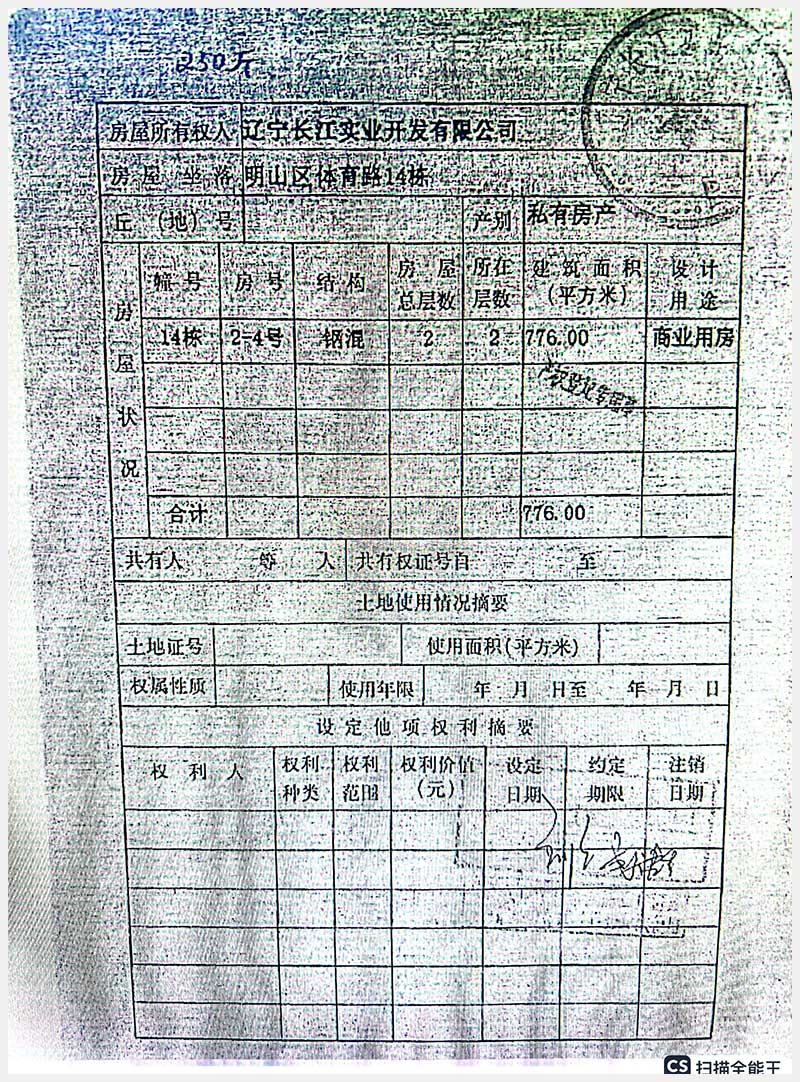 250万
房屋所有权人 辽宁长江实业开发有限公司
房屋坐落 明山区体育路14栋
丘（地）号 产别 私有房产
房屋状况
幢号 房号 结构 房屋总层数 所在层数 建筑面积（平方米） 设计用途
14栋 2-4号 钢混 2 2 776.00 商业用房
产权登记专用章
合计 776.00
共有人 等 人 共有权证号自 至
土地使用情况摘要
土地证号 使用面积(平方米)
权属性质 使用年限 年 月 日至 年 月 日
设定他项权利摘要
权利人 权利种类 权利范围 权利价值(元) 设定日期 约定期限 注销日期
CS 扫描全能王